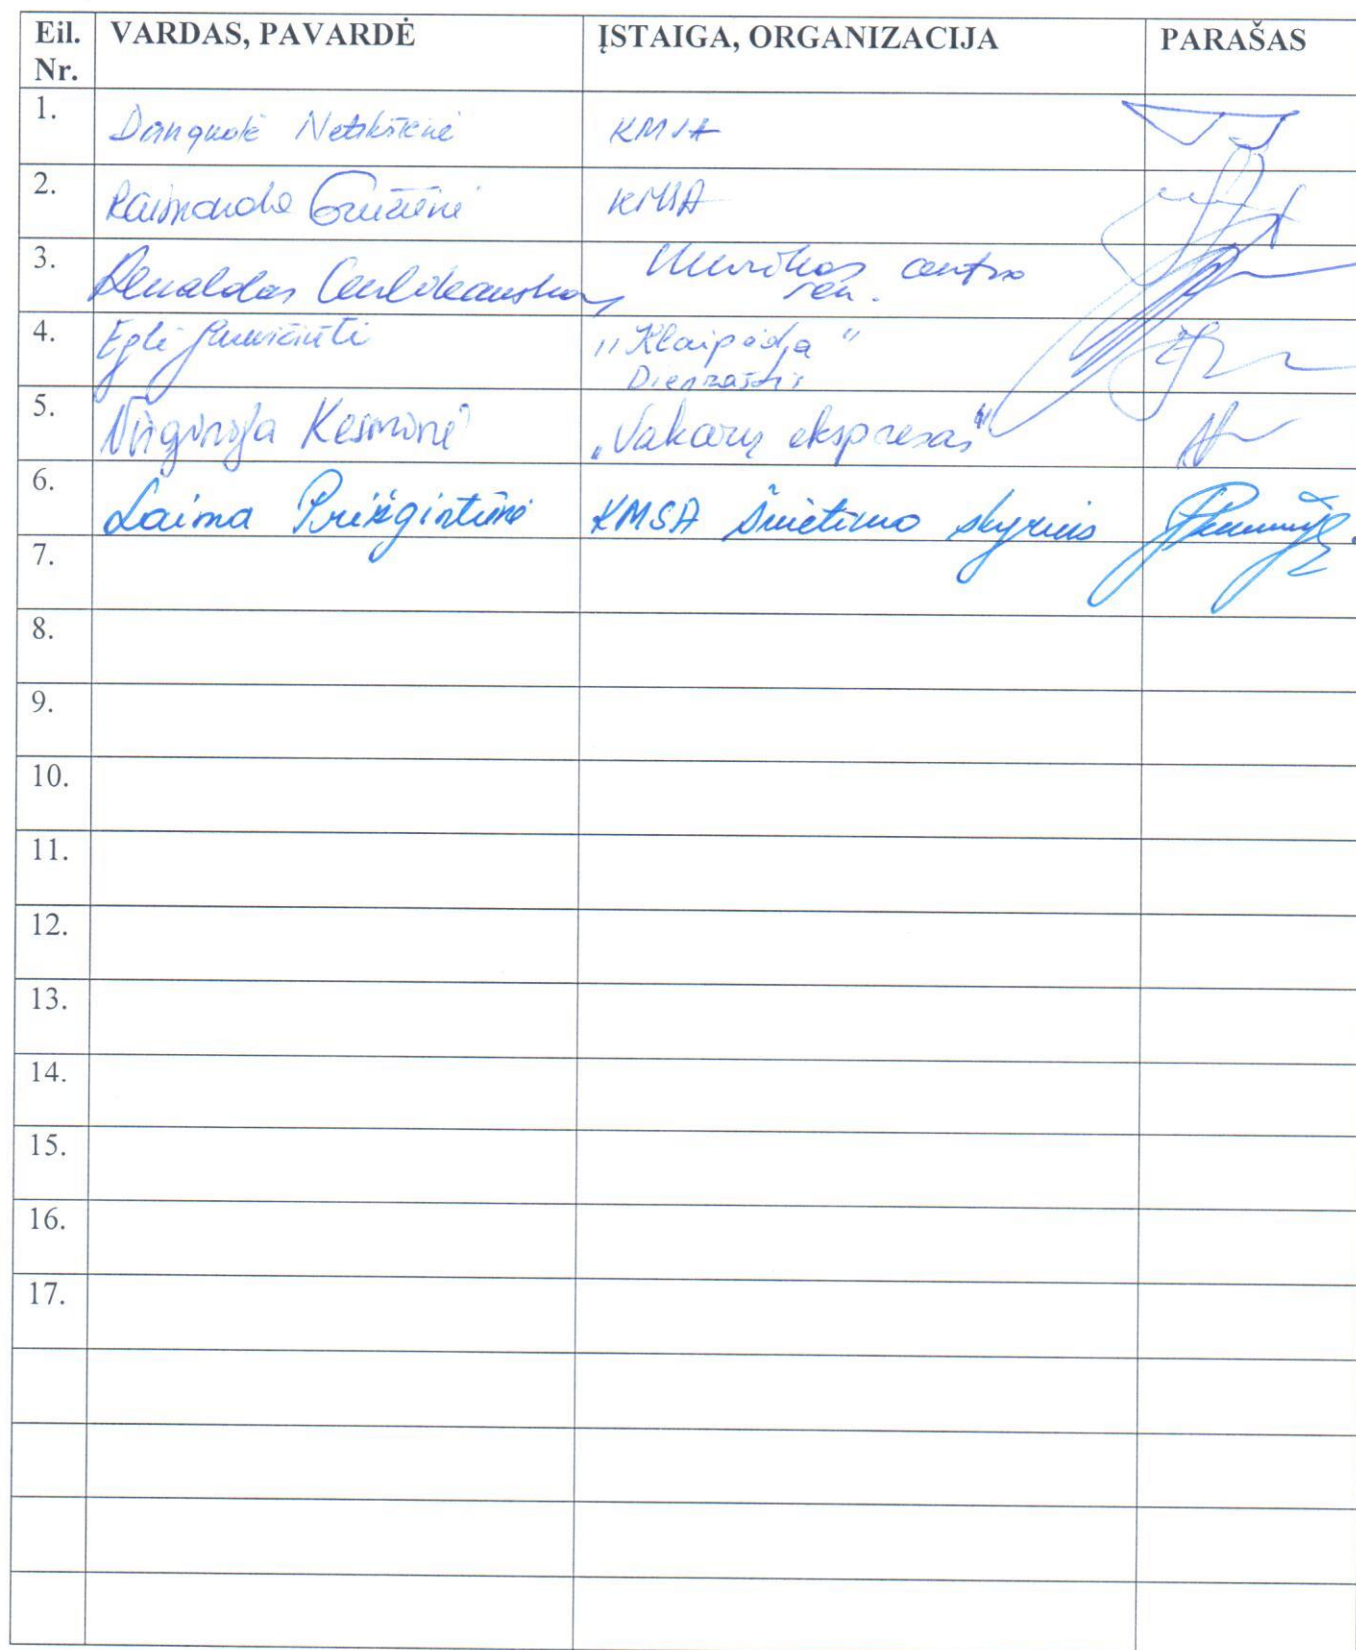 Eil. Nr. VARDAS, PAVARDĖ ĮSTAIGA, ORGANIZACIJA PARAŠAS
1. Danguolė Netikšienė KMSA
2. Raimonda Gružienė KMSA
3. Renaldas Muzikos centro
4. Eglė "Klaipėda"
Dienraštis
5. Virginija Kesminė „Vakarų ekspresas"
6. Laima Prižgintienė KMSA Švietimo skyrius
7.
8.
9.
10.
11.
12.
13.
14.
15.
16.
17.